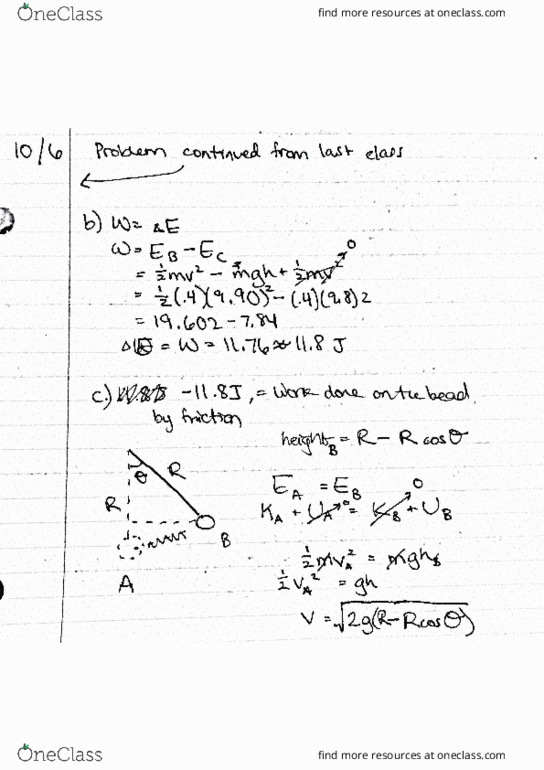 OneClass find more resources at oneclass.com
10/6 Problem continued from last class
b) W = ΔE
W = E_B - E_C
= ½mv² - mgh + ½mv² 0
= ½(.4)(9.90)² - (.4)(9.8)2
= 19.602 - 7.84
ΔE = W = 11.76 ≈ 11.8 J
c.) -11.8J, = work done on the bead
by friction
height_B = R - R cos θ
θ R
R
B
A
E_A = E_B
K_A + U_A 0 = K_B 0 + U_B
½mv_A² = mgh_B
½v_A² = gh
V = √2g(R - R cos θ)
OneClass find more resources at oneclass.com